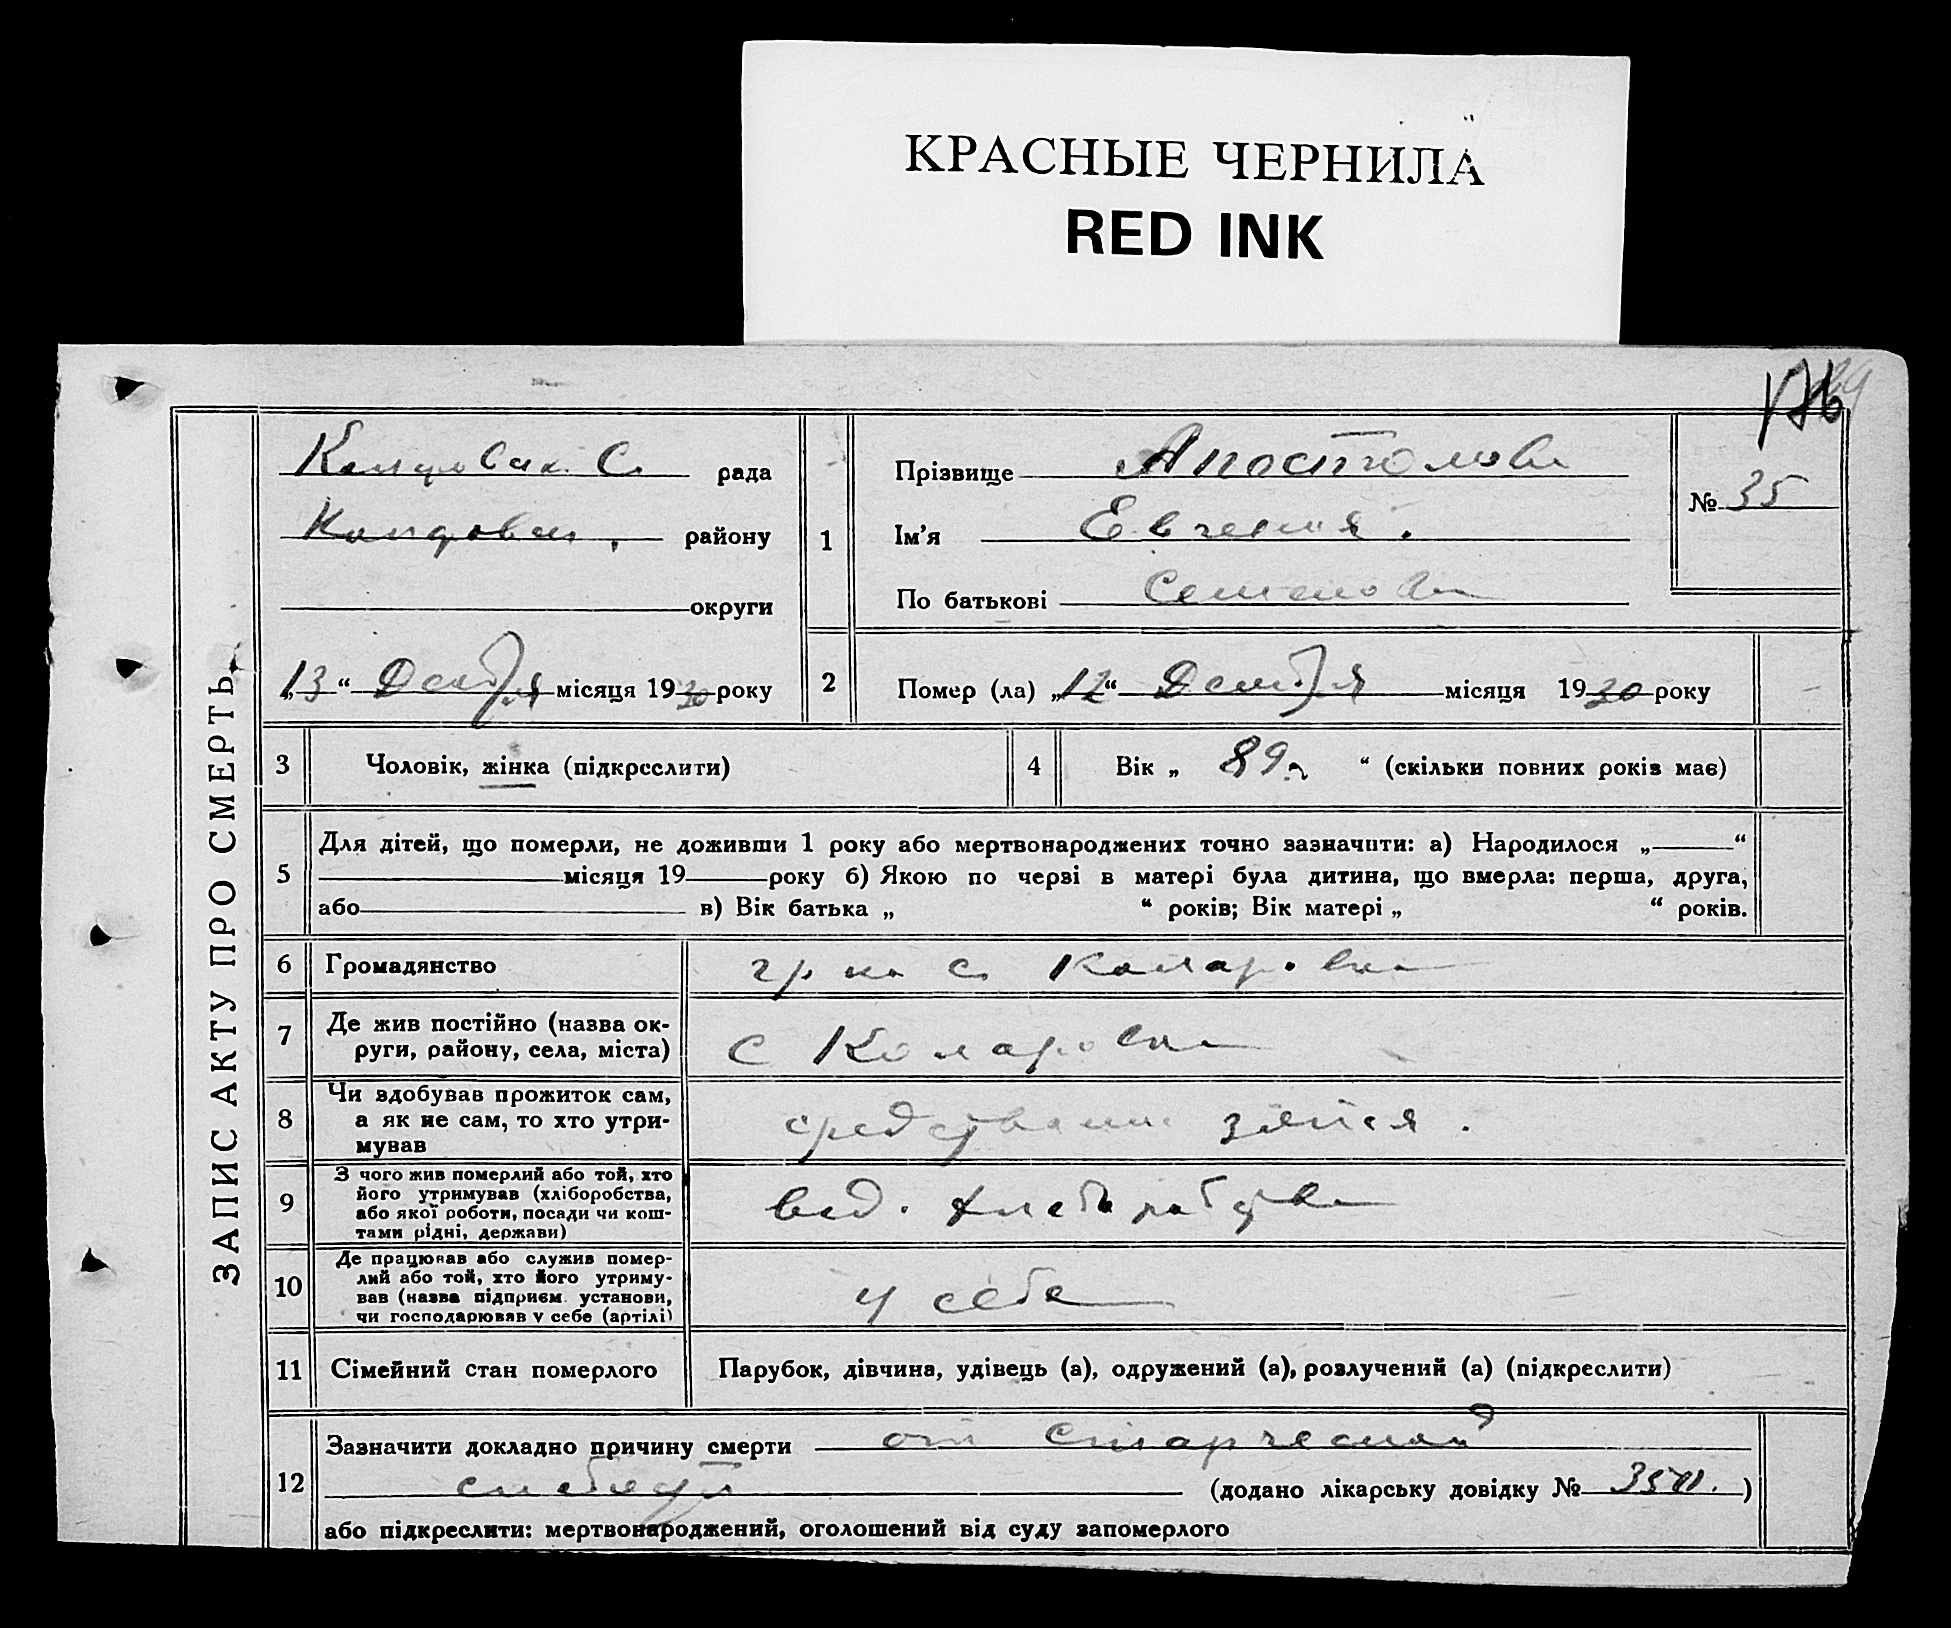 КРАСНЫЕ ЧЕРНИЛА
RED INK
ЗАПИС АКТУ ПРО СМЕРТЬ
рада
району
округи
„13“ Декабря місяця 1930 року
1
Прізвище Апостолова
Ім’я Евгения.
По батькові Семенова
№ 35
2
Помер (ла) „12“ Декабря місяця 1930 року
3
Чоловік, жінка (підкреслити)
4
Вік „ 89 г “ (скільки повних років має)
5
Для дітей, що померли, не доживши 1 року або мертвонароджених точно зазначити: а) Народилося „ “
місяця 19 року б) Якою по черзі в матері була дитина, що вмерла: перша, друга,
або в) Вік батька „ “ років; Вік матері „ “ років.
6
Громадянство
гр ка с Комаровка
7
Де жив постійно (назва ок-
руги, району, села, міста)
с Комаровка
8
Чи здобував прожиток сам,
а як не сам, то хто утри-
мував
средствами зятя.
9
З чого жив померлий або той, хто
його утримував (хліборобства,
або якої роботи, посади чи кош-
тами рідні, держави)
10
Де працював або служив помер-
лий або той, хто його утриму-
вав (назва підприєм. установи,
чи господарював у себе (артілі)
у себя
11
Сімейний стан померлого
Парубок, дівчина, удівець (а), одружений (а), розлучений (а) (підкреслити)
12
Зазначити докладно причину смерти от старческой
слабости (додано лікарську довідку № )
або підкреслити: мертвонароджений, оголошений від суду запомерлого